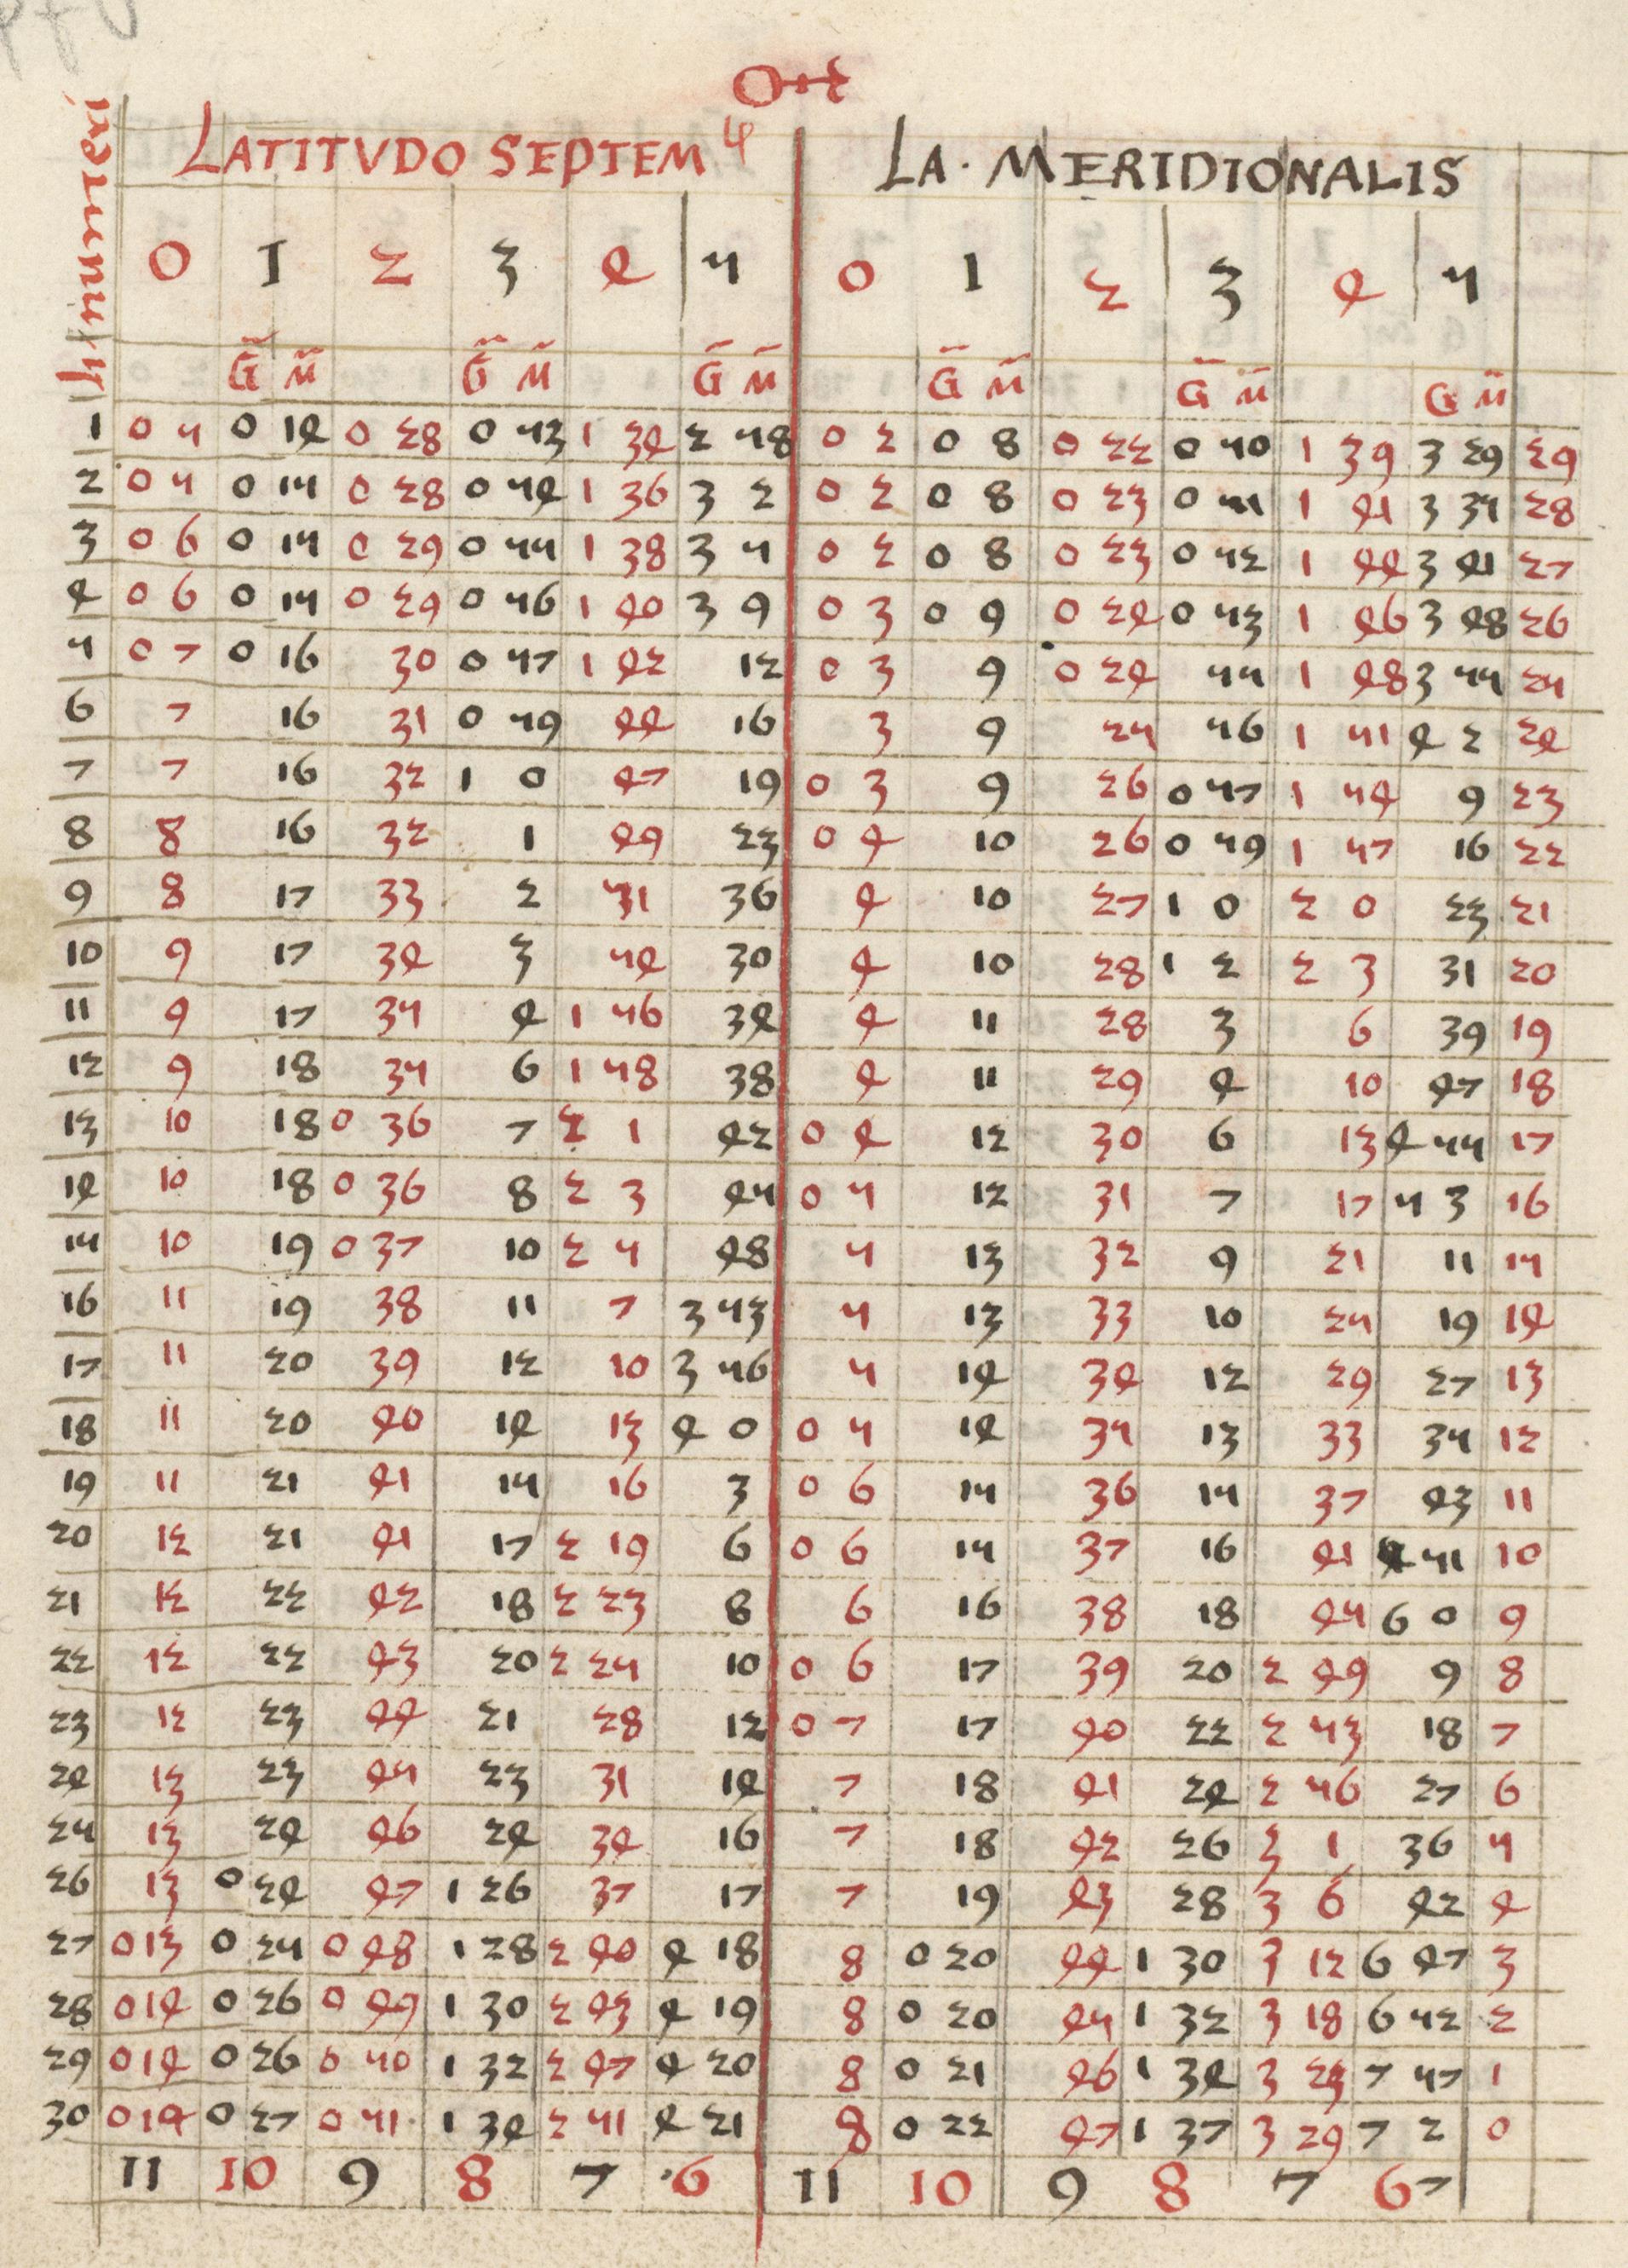 LATITVDO SEPTEM LA · MERIDIONALIS
0 1 2 3 4 5 0 1 2 3 4 5
G̅ M̅ G̅ M̅ G̅ M̅ G̅ M̅ G̅ M̅ G M̅
1 0 5 0 14 0 28 0 53 1 34 2 58 0 2 0 8 0 22 0 50 1 39 3 29 29
2 0 5 0 15 0 28 0 54 1 36 3 2 0 2 0 8 0 23 0 51 1 41 3 35 28
3 0 6 0 15 0 29 0 55 1 38 3 5 0 2 0 8 0 23 0 52 1 44 3 41 27
4 0 6 0 15 0 29 0 56 1 40 3 9 0 3 0 9 0 24 0 53 1 46 3 48 26
5 0 7 0 16 30 0 57 1 42 12 0 3 9 0 24 55 1 48 3 55 25
6 7 16 31 0 59 44 16 3 9 25 56 1 51 4 2 24
7 7 16 32 1 0 47 19 0 3 9 26 0 57 1 54 9 23
8 8 16 32 1 49 23 0 4 10 26 0 59 1 57 16 22
9 8 17 33 2 51 36 4 10 27 1 0 2 0 23 21
10 9 17 34 3 54 30 4 10 28 1 2 2 3 31 20
11 9 17 35 4 1 56 34 4 11 28 3 6 39 19
12 9 18 35 6 1 58 38 4 11 29 4 10 47 18
13 10 18 0 36 7 2 1 42 0 4 12 30 6 13 4 55 17
14 10 18 0 36 8 2 3 45 0 5 12 31 7 17 5 3 16
15 10 19 0 37 10 2 5 48 5 13 32 9 21 11 15
16 11 19 38 11 7 3 53 5 13 33 10 25 19 14
17 11 20 39 12 10 3 56 5 14 34 12 29 27 13
18 11 20 40 14 13 4 0 0 5 14 35 13 33 35 12
19 11 21 41 15 16 3 0 6 15 36 15 37 43 11
20 12 21 41 17 2 19 6 0 6 15 37 16 41 5 51 10
21 12 22 42 18 2 23 8 6 16 38 18 45 6 0 9
22 12 22 43 20 2 25 10 0 6 17 39 20 2 49 9 8
23 12 23 44 21 28 12 0 7 17 40 22 2 53 18 7
24 13 23 45 23 31 14 7 18 41 24 2 56 27 6
25 13 24 46 24 34 16 7 18 42 26 3 1 36 5
26 13 0 24 47 1 26 37 17 7 19 43 28 3 6 42 4
27 0 13 0 25 0 48 1 28 2 40 4 18 8 0 20 44 1 30 3 12 6 47 3
28 0 14 0 26 0 49 1 30 2 43 4 19 8 0 20 45 1 32 3 18 6 52 2
29 0 14 0 26 0 50 1 32 2 47 4 20 8 0 21 46 1 34 3 24 7 57 1
30 0 14 0 27 0 51 1 34 2 51 4 21 8 0 22 47 1 37 3 29 7 2 0
11 10 9 8 7 6 11 10 9 8 7 6 7